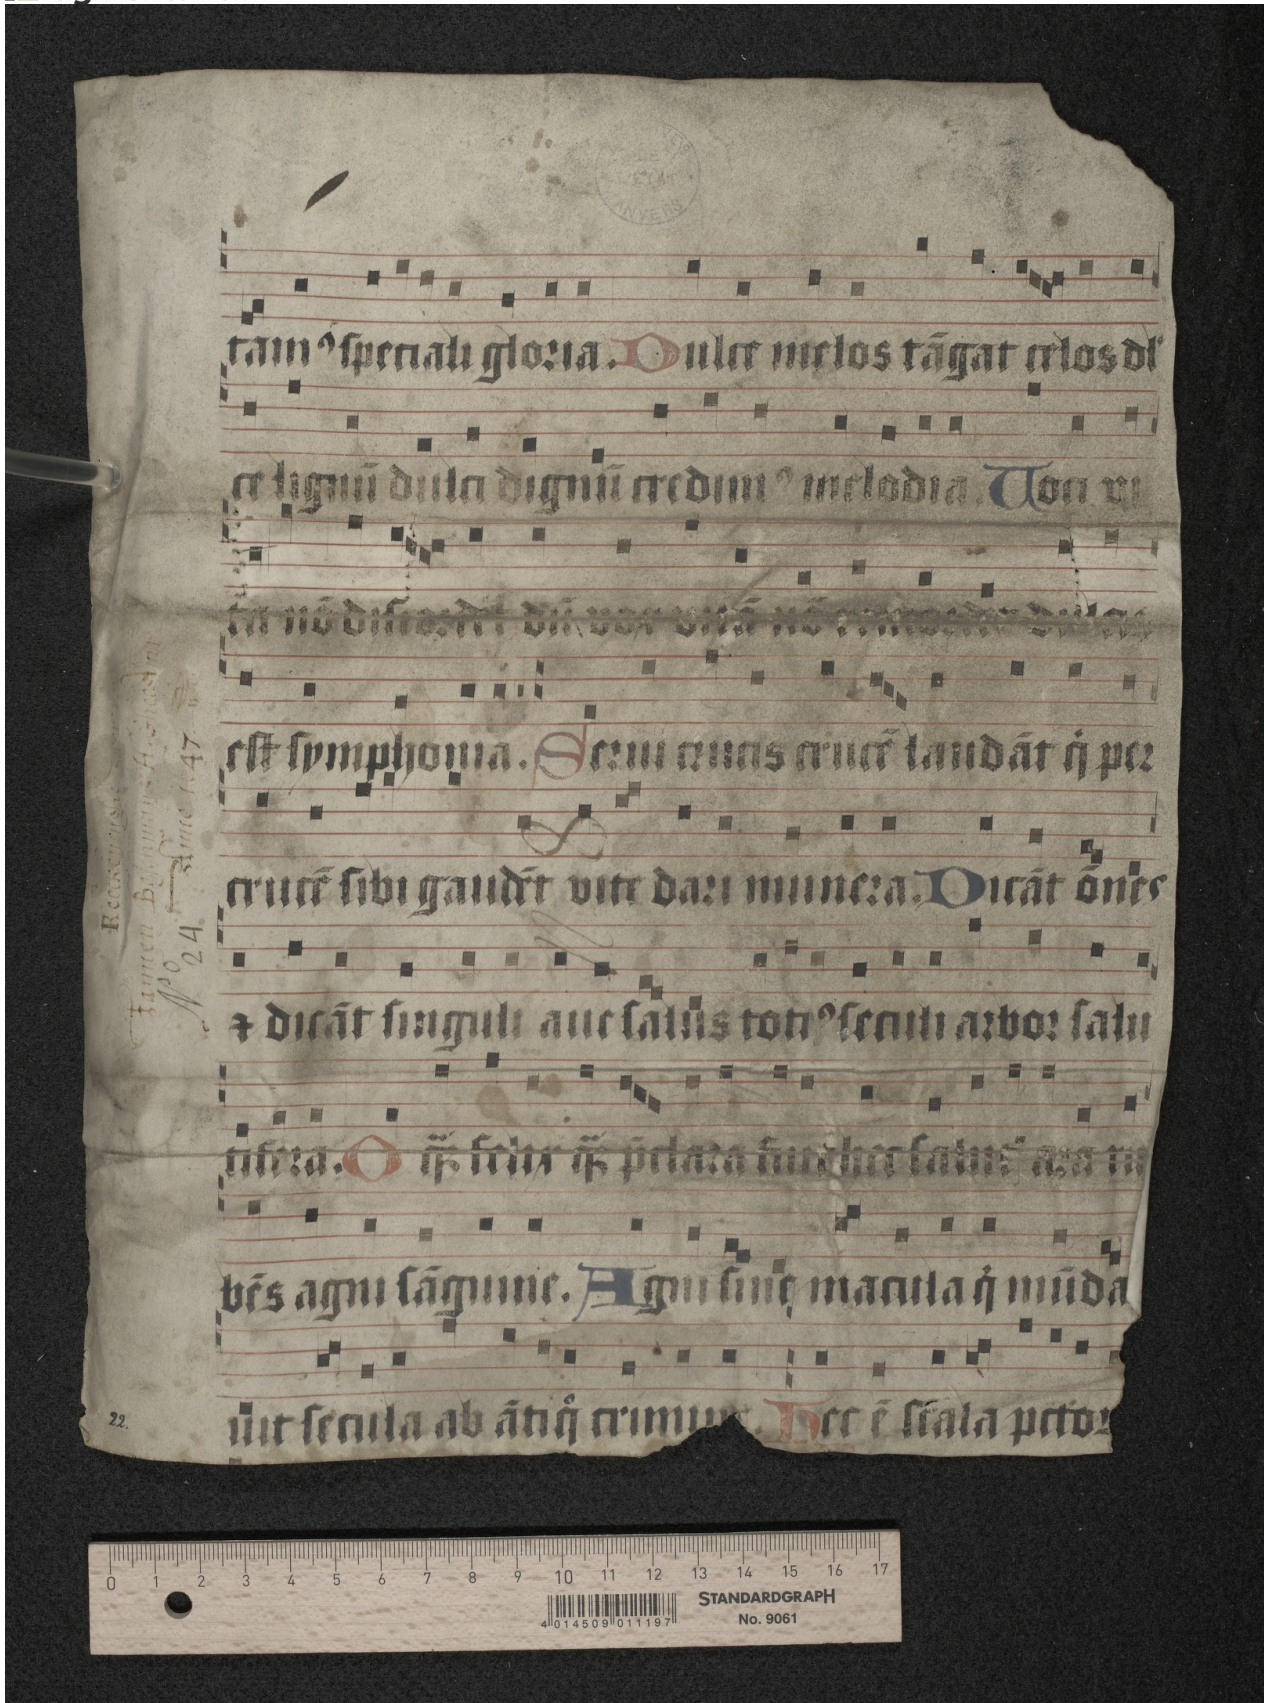 ANVERS
tamꝰ speciali gloria. Dulce melos tāgat celos dl'
ce lignū dulci dignū credimꝰ melodia. Voci vi
ta nō discordet dū vox vitā nō remordet dulcis
est symphonia. Serui crucis crucē laudāt q̇ per
crucē sibi gaudēt vite dari munera. Dicāt ōnes
⁊ dicāt singuli aue salus totiꝰ seculi arbor salu
tifera. O q̄ felix q̄ p̄clara fuit hec salutꝭ ara ru
bēs agni sāguine. Agni sine macula q̇ mūda
uit secula ab ātiq̊ crimine. Hec ē scala pctor
Anno 1.47
No 24
22.
0 1 2 3 4 5 6 7 8 9 10 11 12 13 14 15 16 17
STANDARDGRAPH
No. 9061
4 014509 011197